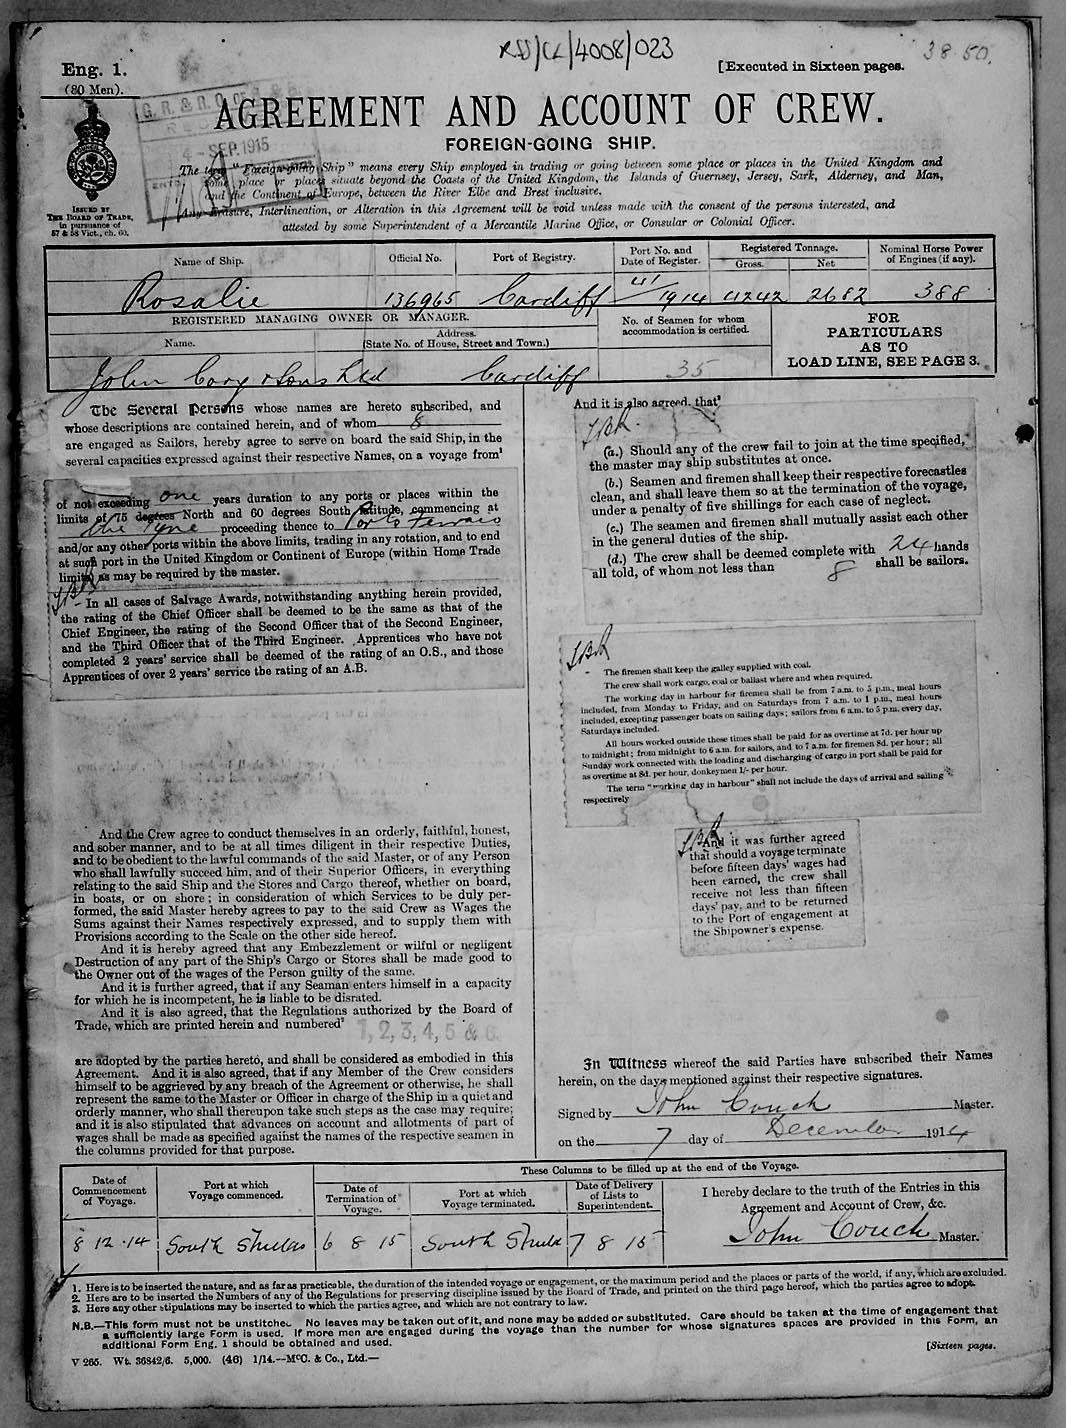 RSS/CL/4008/023
38.50.
Eng. 1.
(80 Men).
[Executed in Sixteen pages.
G. R. & R. O. OF S. & S.
SEP 1915
AGREEMENT AND ACCOUNT OF CREW.
FOREIGN-GOING SHIP.
The term "Foreign-going Ship" means every Ship employed in trading or going between some place or places in the United Kingdom and
some place or places situate beyond the Coasts of the United Kingdom, the Islands of Guernsey, Jersey, Sark, Alderney, and Man,
and the Continent of Europe, between the River Elbe and Brest inclusive.
Any Erasure, Interlineation, or Alteration in this Agreement will be void unless made with the consent of the persons interested, and
attested by some Superintendent of a Mercantile Marine Office, or Consular or Colonial Officer.
ISSUED BY
THE BOARD OF TRADE,
in pursuance of
57 & 58 Vict., ch. 60.
Name of Ship.
Official No.
Port of Registry.
Port No. and
Date of Register.
Registered Tonnage.
Gross.
Net
Nominal Horse Power
of Engines (if any).
Rosalie
136965
Cardiff
41/1914
4242
2682
388
REGISTERED MANAGING OWNER OR MANAGER.
Name.
Address.
(State No. of House, Street and Town.)
No. of Seamen for whom
accommodation is certified.
FOR
PARTICULARS
AS TO
LOAD LINE, SEE PAGE 3.
John Cory & Sons Ltd
Cardiff
35
The Several Persons whose names are hereto subscribed, and
whose descriptions are contained herein, and of whom 8
are engaged as Sailors, hereby agree to serve on board the said Ship, in the
several capacities expressed against their respective Names, on a voyage from¹
of not exceeding one years duration to any ports or places within the
limits of 75 degrees North and 60 degrees South latitude, commencing at
the Tyne proceeding thence to Porto Ferraio
and/or any other ports within the above limits, trading in any rotation, and to end
at such port in the United Kingdom or Continent of Europe (within Home Trade
limits) as may be required by the master.
In all cases of Salvage Awards, notwithstanding anything herein provided,
the rating of the Chief Officer shall be deemed to be the same as that of the
Chief Engineer, the rating of the Second Officer that of the Second Engineer,
and the Third Officer that of the Third Engineer. Apprentices who have not
completed 2 years' service shall be deemed of the rating of an O.S., and those
Apprentices of over 2 years' service the rating of an A.B.
And the Crew agree to conduct themselves in an orderly, faithful, honest,
and sober manner, and to be at all times diligent in their respective Duties,
and to be obedient to the lawful commands of the said Master, or of any Person
who shall lawfully succeed him, and of their Superior Officers, in everything
relating to the said Ship and the Stores and Cargo thereof, whether on board,
in boats, or on shore; in consideration of which Services to be duly per-
formed, the said Master hereby agrees to pay to the said Crew as Wages the
Sums against their Names respectively expressed, and to supply them with
Provisions according to the Scale on the other side hereof.
And it is hereby agreed that any Embezzlement or wilful or negligent
Destruction of any part of the Ship's Cargo or Stores shall be made good to
the Owner out of the wages of the Person guilty of the same.
And it is further agreed, that if any Seaman enters himself in a capacity
for which he is incompetent, he is liable to be disrated.
And it is also agreed, that the Regulations authorized by the Board of
Trade, which are printed herein and numbered² 1, 2, 3, 4, 5 & 6
are adopted by the parties hereto, and shall be considered as embodied in this
Agreement. And it is also agreed, that if any Member of the Crew considers
himself to be aggrieved by any breach of the Agreement or otherwise, he shall
represent the same to the Master or Officer in charge of the Ship in a quiet and
orderly manner, who shall thereupon take such steps as the case may require;
and it is also stipulated that advances on account and allotments of part of
wages shall be made as specified against the names of the respective seamen in
the columns provided for that purpose.
And it is also agreed, that³
(a.) Should any of the crew fail to join at the time specified,
the master may ship substitutes at once.
(b.) Seamen and firemen shall keep their respective forecastles
clean, and shall leave them so at the termination of the voyage,
under a penalty of five shillings for each case of neglect.
(c.) The seamen and firemen shall mutually assist each other
in the general duties of the ship.
(d.) The crew shall be deemed complete with 24 hands
all told, of whom not less than 8 shall be sailors.
The firemen shall keep the galley supplied with coal.
The crew shall work cargo, coal or ballast where and when required.
The working day in harbour for firemen shall be from 7 a.m. to 5 p.m., meal hours
included, from Monday to Friday, and on Saturdays from 7 a.m. to 1 p.m., meal hours
included, excepting passenger boats on sailing days; sailors from 6 a.m. to 5 p.m. every day,
Saturdays included.
All hours worked outside these times shall be paid for as overtime at 7d. per hour up
to midnight; from midnight to 6 a.m. for sailors, and to 7 a.m. for firemen 8d. per hour; all
Sunday work connected with the loading and discharging of cargo in port shall be paid for
as overtime at 8d. per hour, donkeymen 1/- per hour.
The term "working day in harbour" shall not include the days of arrival and sailing
respectively
And it was further agreed
that should a voyage terminate
before fifteen days' wages had
been earned, the crew shall
receive not less than fifteen
days' pay, and to be returned
to the Port of engagement at
the Shipowner's expense.
In Witness whereof the said Parties have subscribed their Names
herein, on the days mentioned against their respective signatures.
Signed by John Couch Master.
on the 7 day of December 1914
These Columns to be filled up at the end of the Voyage.
Date of
Commencement
of Voyage.
Port at which
Voyage commenced.
Date of
Termination of
Voyage.
Port at which
Voyage terminated.
Date of Delivery
of Lists to
Superintendent.
I hereby declare to the truth of the Entries in this
Agreement and Account of Crew, &c.
John Couch Master.
8 12 . 14
South Shields
6 8 15
South Shields
7 8 15
1. Here is to be inserted the nature, and as far as practicable, the duration of the intended voyage or engagement, or the maximum period and the places or parts of the world, if any, which are excluded.
2. Here are to be inserted the Numbers of any of the Regulations for preserving discipline issued by the Board of Trade, and printed on the third page hereof, which the parties agree to adopt.
3. Here any other stipulations may be inserted to which the parties agree, and which are not contrary to law.
N.B.—This form must not be unstitched. No leaves may be taken out of it, and none may be added or substituted. Care should be taken at the time of engagement that
a sufficiently large Form is used. If more men are engaged during the voyage than the number for whose signatures spaces are provided in this Form, an
additional Form Eng. 1 should be obtained and used.
V 265. Wt. 36842/6. 5,000. (46) 1/14.—McC. & Co., Ltd.—
[Sixteen pages.